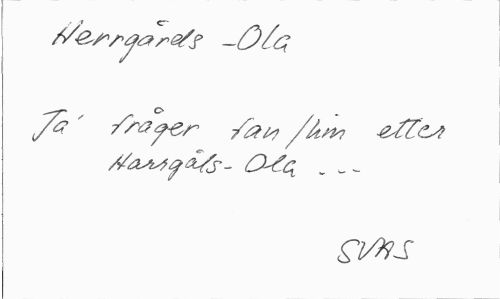 Herrgårds-Ola
Tá fråger fan/hin etter
Harrgåls-Ola ...
SVAS